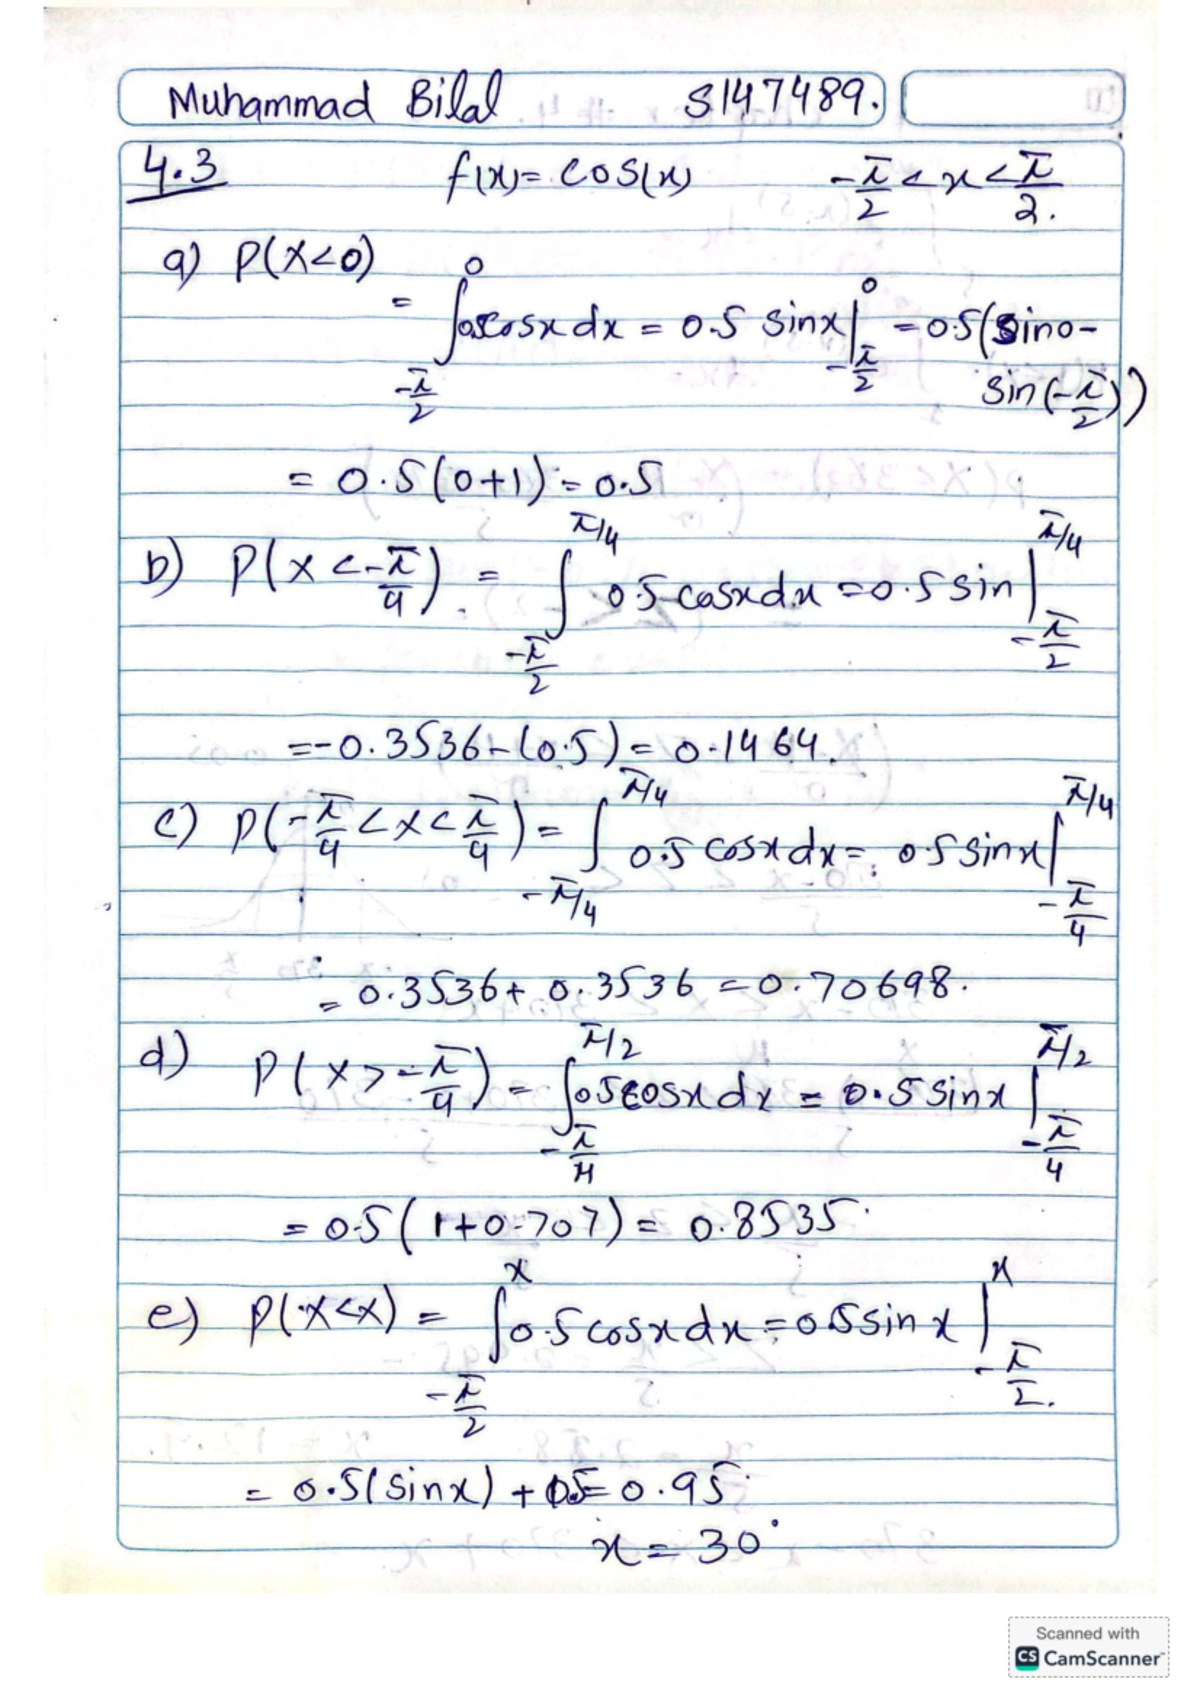 Muhammad Bilal S147489.
4.3 f(x)= cos(x) -π/2 < x < π/2.
a) P(X<0)
= ∫_{-π/2}^{0} 0.5cosx dx = 0.5 sinx|_{-π/2}^{0} = 0.5(sin0-
sin(-π/2))
= 0.5(0+1) = 0.5
b) P(X < -π/4) = ∫_{-π/2}^{π/4} 0.5 cosx dx = 0.5 sin|_{-π/2}^{π/4}
= -0.3536 - (0.5) = 0.1464.
c) P(-π/4 < X < π/4) = ∫_{-π/4}^{π/4} 0.5 cosx dx = 0.5 sinx|_{-π/4}^{π/4}
= 0.3536 + 0.3536 = 0.70698.
d) P(X > -π/4) = ∫_{-π/4}^{π/2} 0.5cosx dx = 0.5 sinx|_{-π/4}^{π/2}
= 0.5(1+0.707) = 0.8535.
e) P(X<x) = ∫_{-π/2}^{x} 0.5 cosx dx = 0.5 sin x|_{-π/2}^{x}
= 0.5(sinx) + 0.5 = 0.95.
x = 30°
Scanned with
CS CamScanner